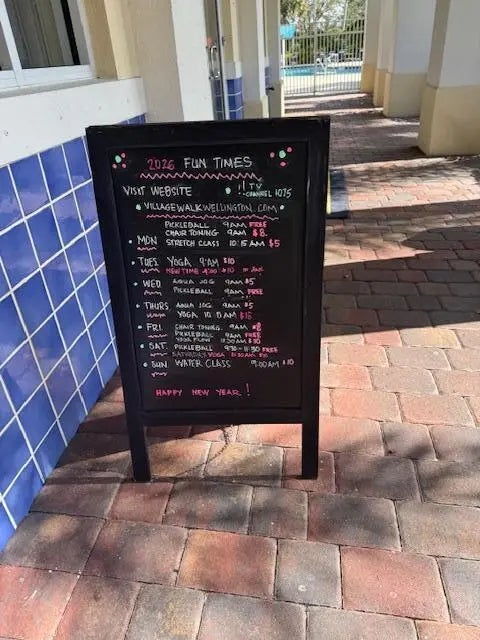 2026 FUN TIMES
VISIT WEBSITE !! TV CHANNEL 1075
• VILLAGEWALKWELLINGTON.COM •
PICKLEBALL 9AM FREE
CHAIR TONING 9AM $8
• MON STRETCH CLASS 10:15 AM $5
• TUES YOGA 9AM $10
NEW TIME $10
• WED AQUA JOG 9AM $5
PICKLEBALL 9AM FREE
• THURS AQUA JOG 9AM $5
YOGA $15
• FRI. CHAIR TONING 9AM $8
PICKLEBALL 9AM FREE
YOGA FLOW $10
• SAT. PICKLEBALL 9:30-11:30 FREE
SATURDAY YOGA
• SUN WATER CLASS 9:00AM $10
HAPPY NEW YEAR!